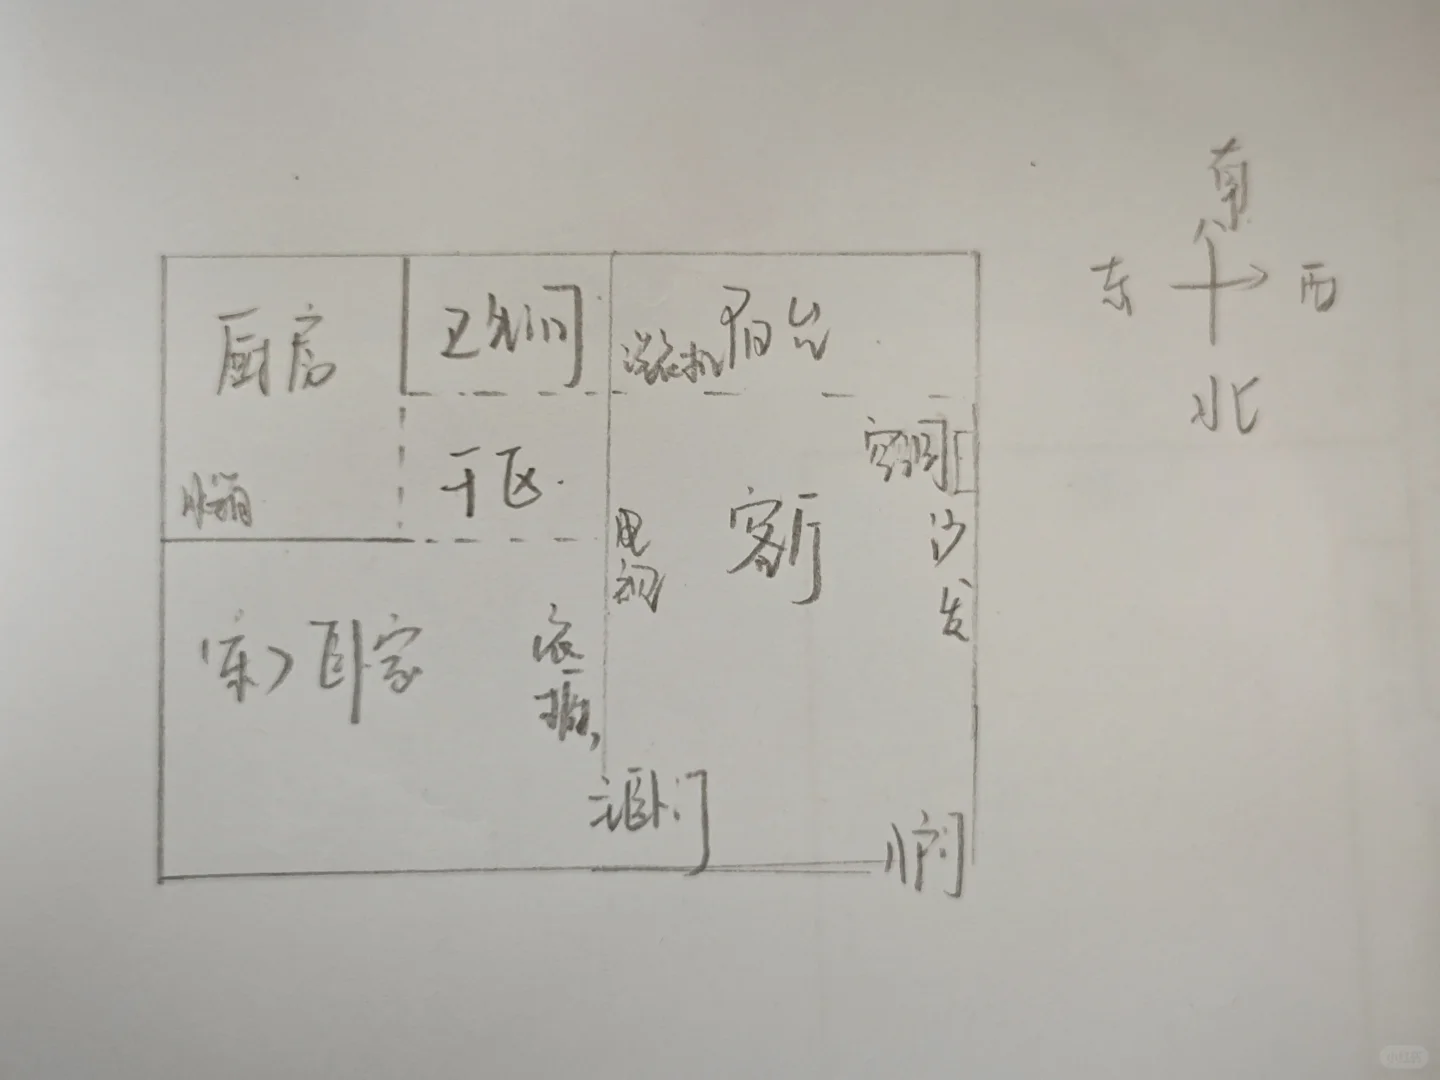 南
东
西
北
厨房
卫生间
洗衣机
阳台
冰箱
干区
电视
客厅
空调
沙发
(东)卧室
衣柜
主卧门
入户门